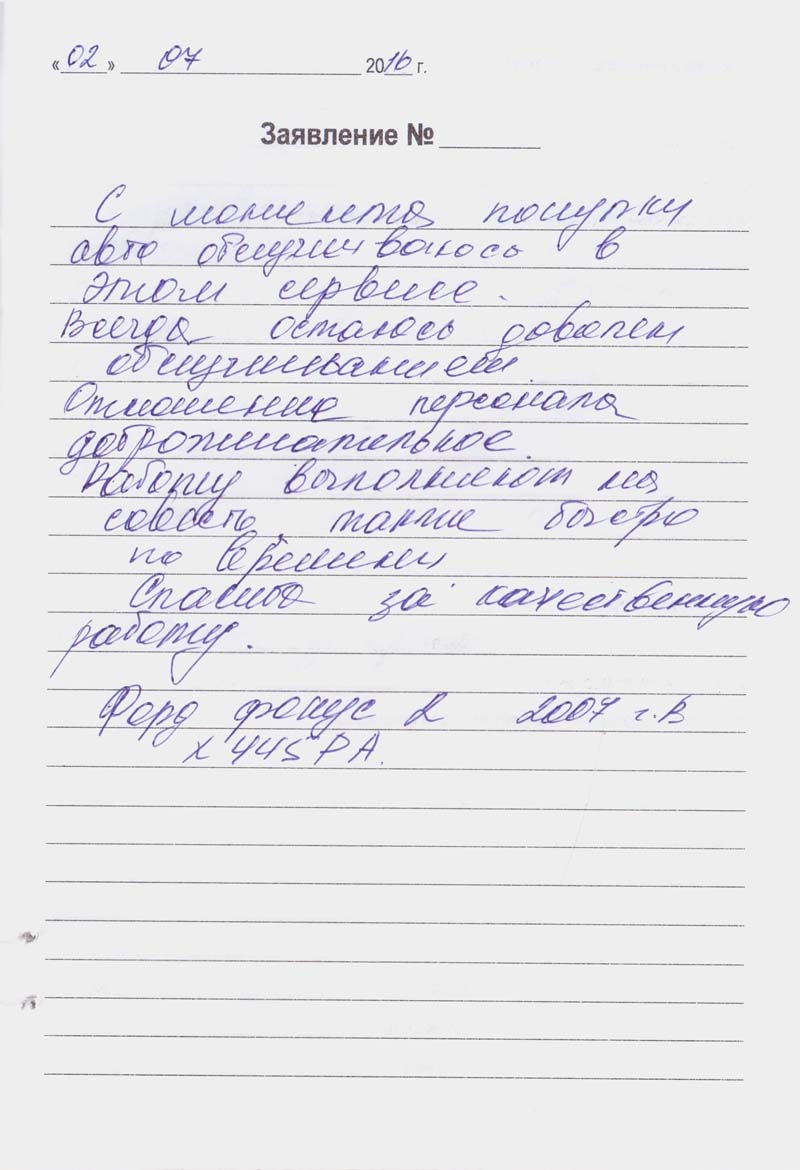 «02» 07 2016 г.
Заявление № ______
С момента покупки
авто обслуживаюсь в
этом сервисе.
Всегда остаюсь доволен
обслуживанием
Отношение персонала
доброжелательное.
Работу выполняют на
совесть, также быстро
по времени
Спасибо за качественную
работу.
Форд фокус 2 2007 г.в
х 445 РА.